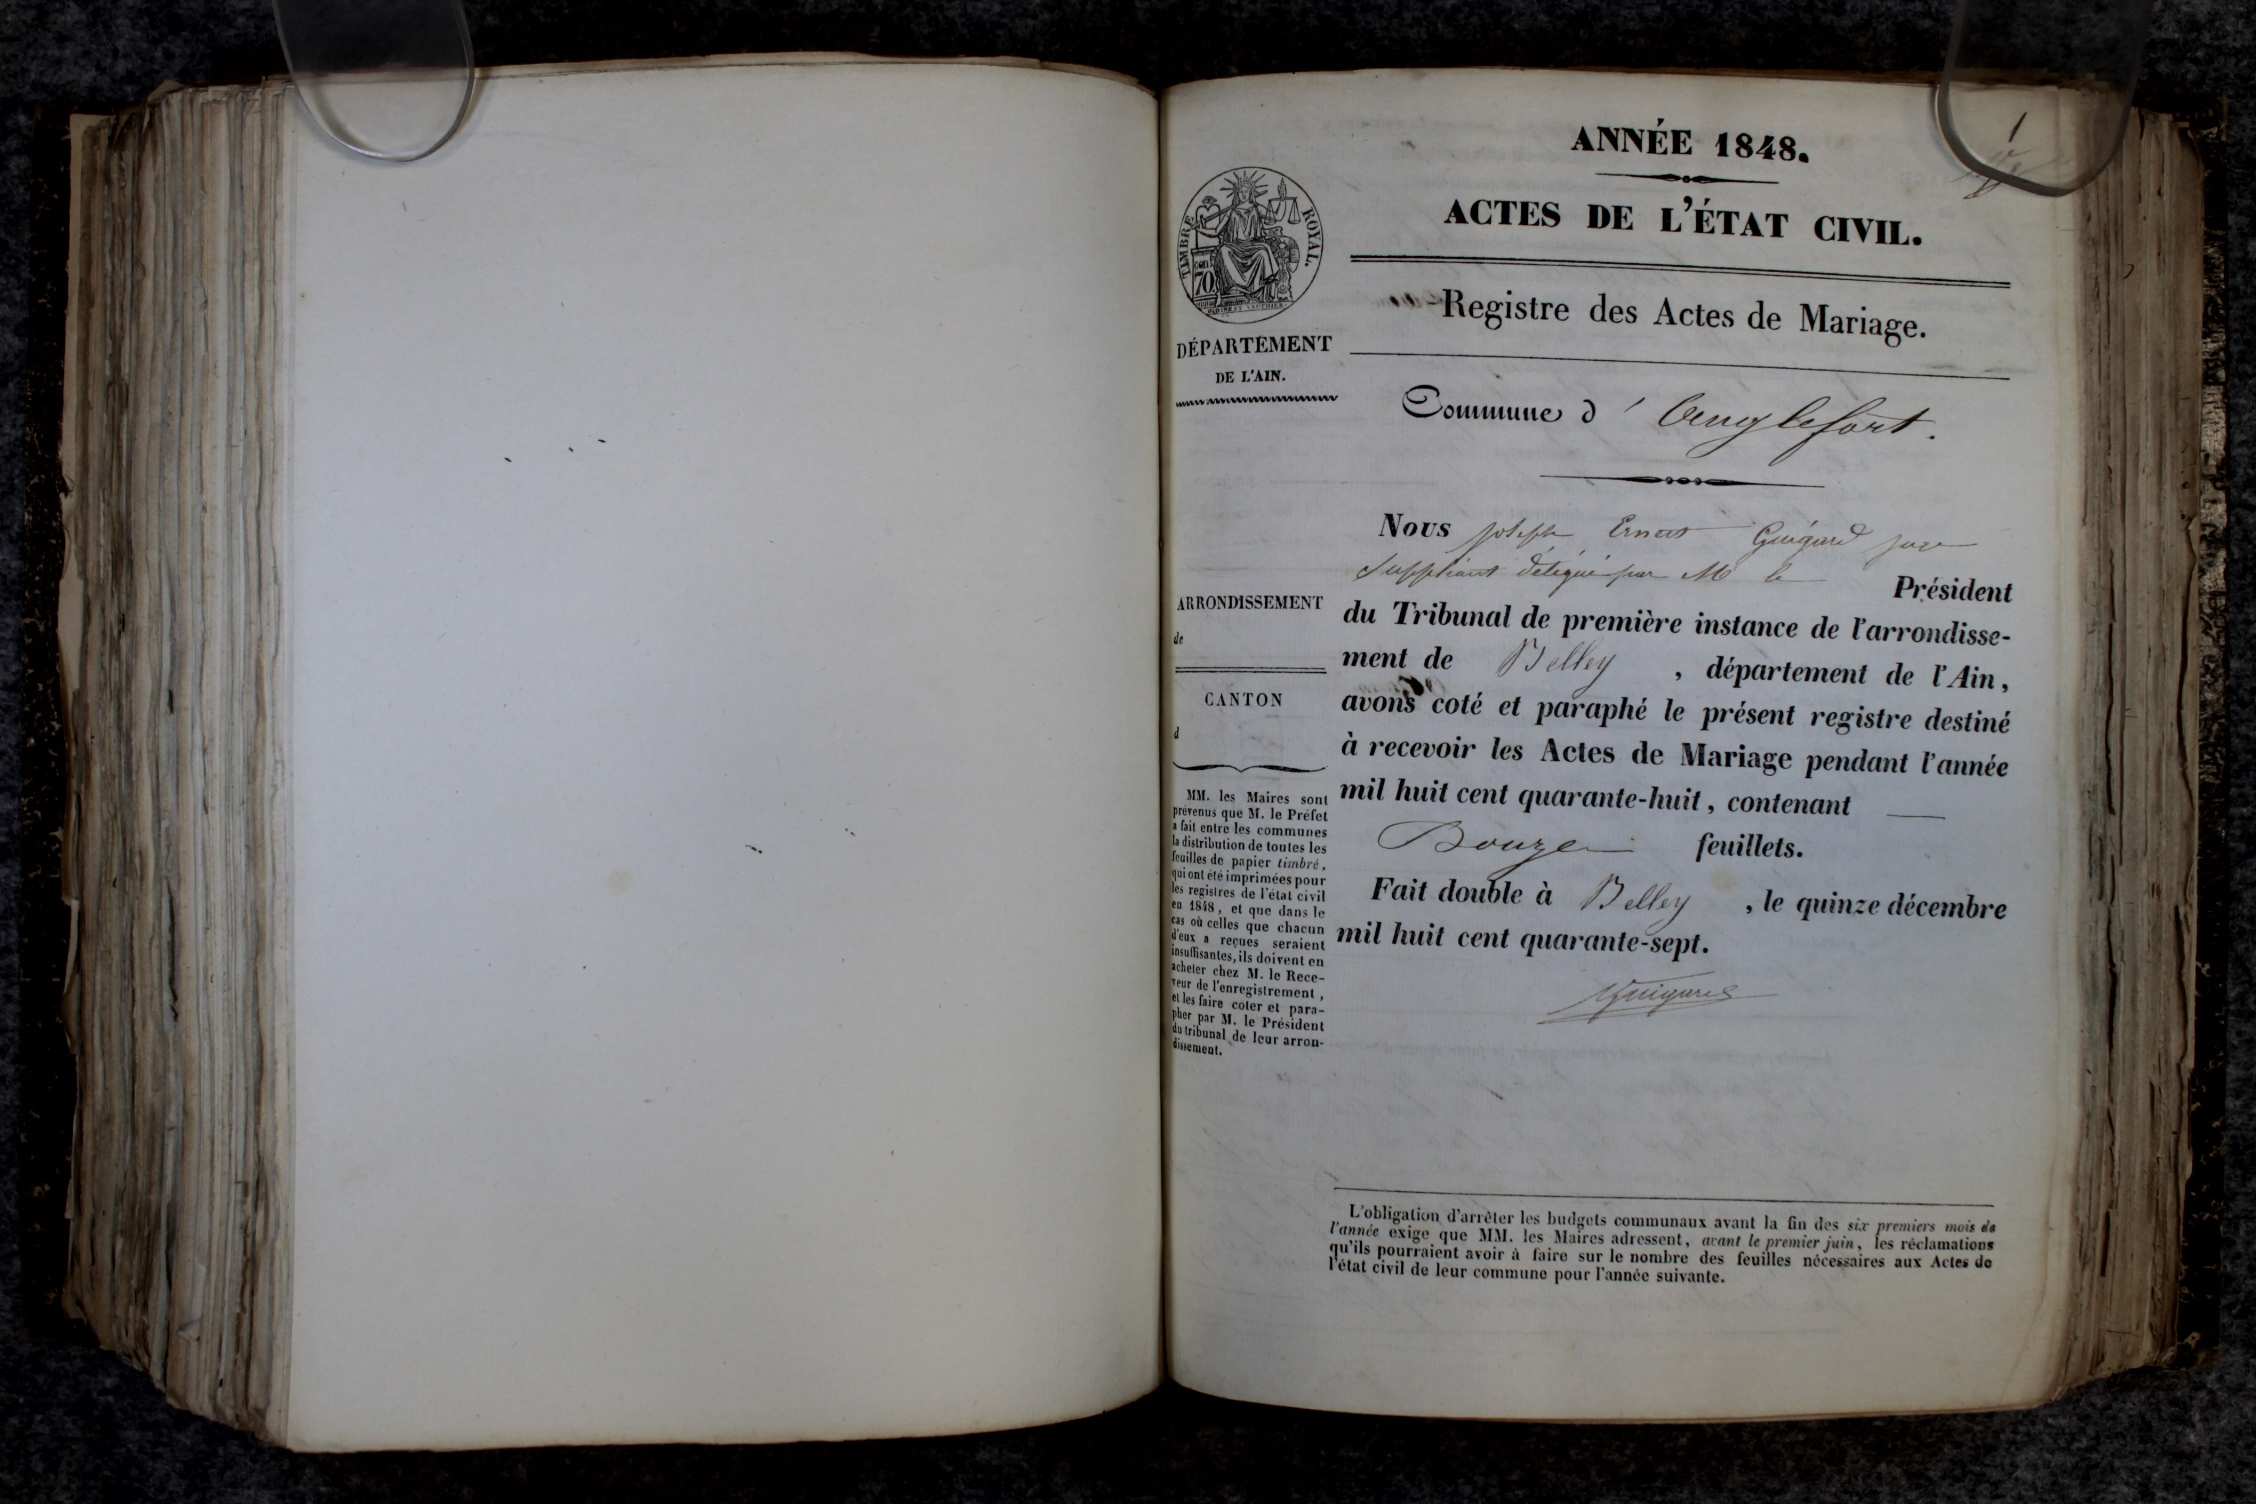 1
ANNÉE 1848.
ACTES DE L'ÉTAT CIVIL.
TIMBRE ROYAL.
70
Registre des Actes de Mariage.
DÉPARTEMENT
DE L'AIN.
Commune d' Anglefort.
Nous Joseph Ernest Guigard juge
suppléant délégué par M le Président
du Tribunal de première instance de l'arrondisse-
ment de Belley, département de l'Ain,
avons coté et paraphé le présent registre destiné
à recevoir les Actes de Mariage pendant l'année
mil huit cent quarante-huit, contenant
feuillets.
Fait double à Belley, le quinze décembre
mil huit cent quarante-sept.
Guigard
ARRONDISSEMENT
de
CANTON
d
MM. les Maires sont
prévenus que M. le Préfet
a fait entre les communes
la distribution de toutes les
feuilles de papier timbré,
qui ont été imprimées pour
les registres de l'état civil
en 1848, et que dans le
cas où celles que chacun
d'eux a reçues seraient
insuffisantes, ils doivent en
acheter chez M. le Rece-
veur de l'enregistrement,
et les faire coter et para-
pher par M. le Président
du tribunal de leur arron-
dissement.
L'obligation d'arrêter les budgets communaux avant la fin des six premiers mois de
l'année exige que MM. les Maires adressent, avant le premier juin, les réclamations
qu'ils pourraient avoir à faire sur le nombre des feuilles nécessaires aux Actes de
l'état civil de leur commune pour l'année suivante.